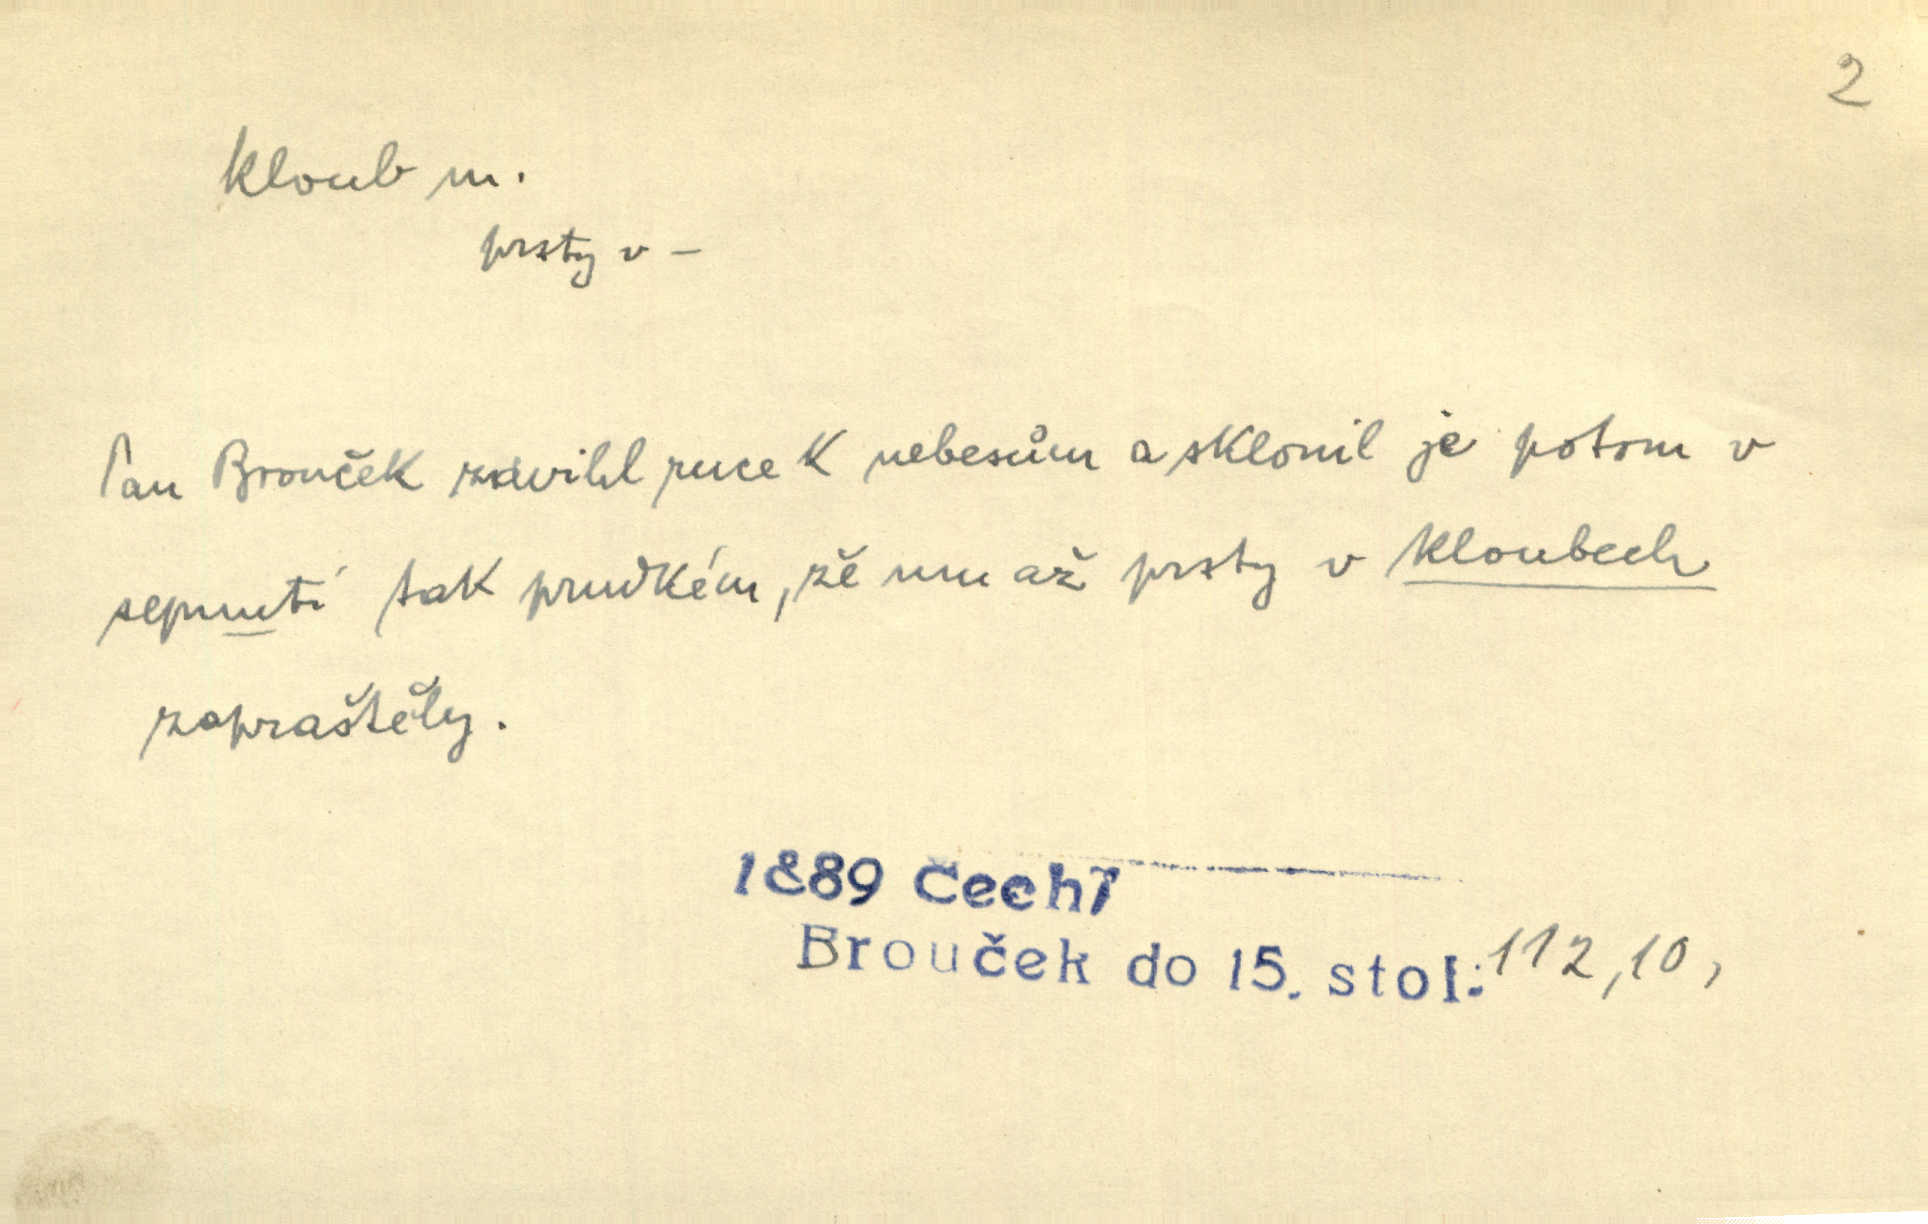 2
kloub m.
prsty v –
Pan Brouček zdvihl ruce k nebesům a sklonil je potom v
sepnutí tak prudkém, že mu až prsty v kloubech
zapraštěly.
1889 Čech
Brouček do 15. stol. 112,10,